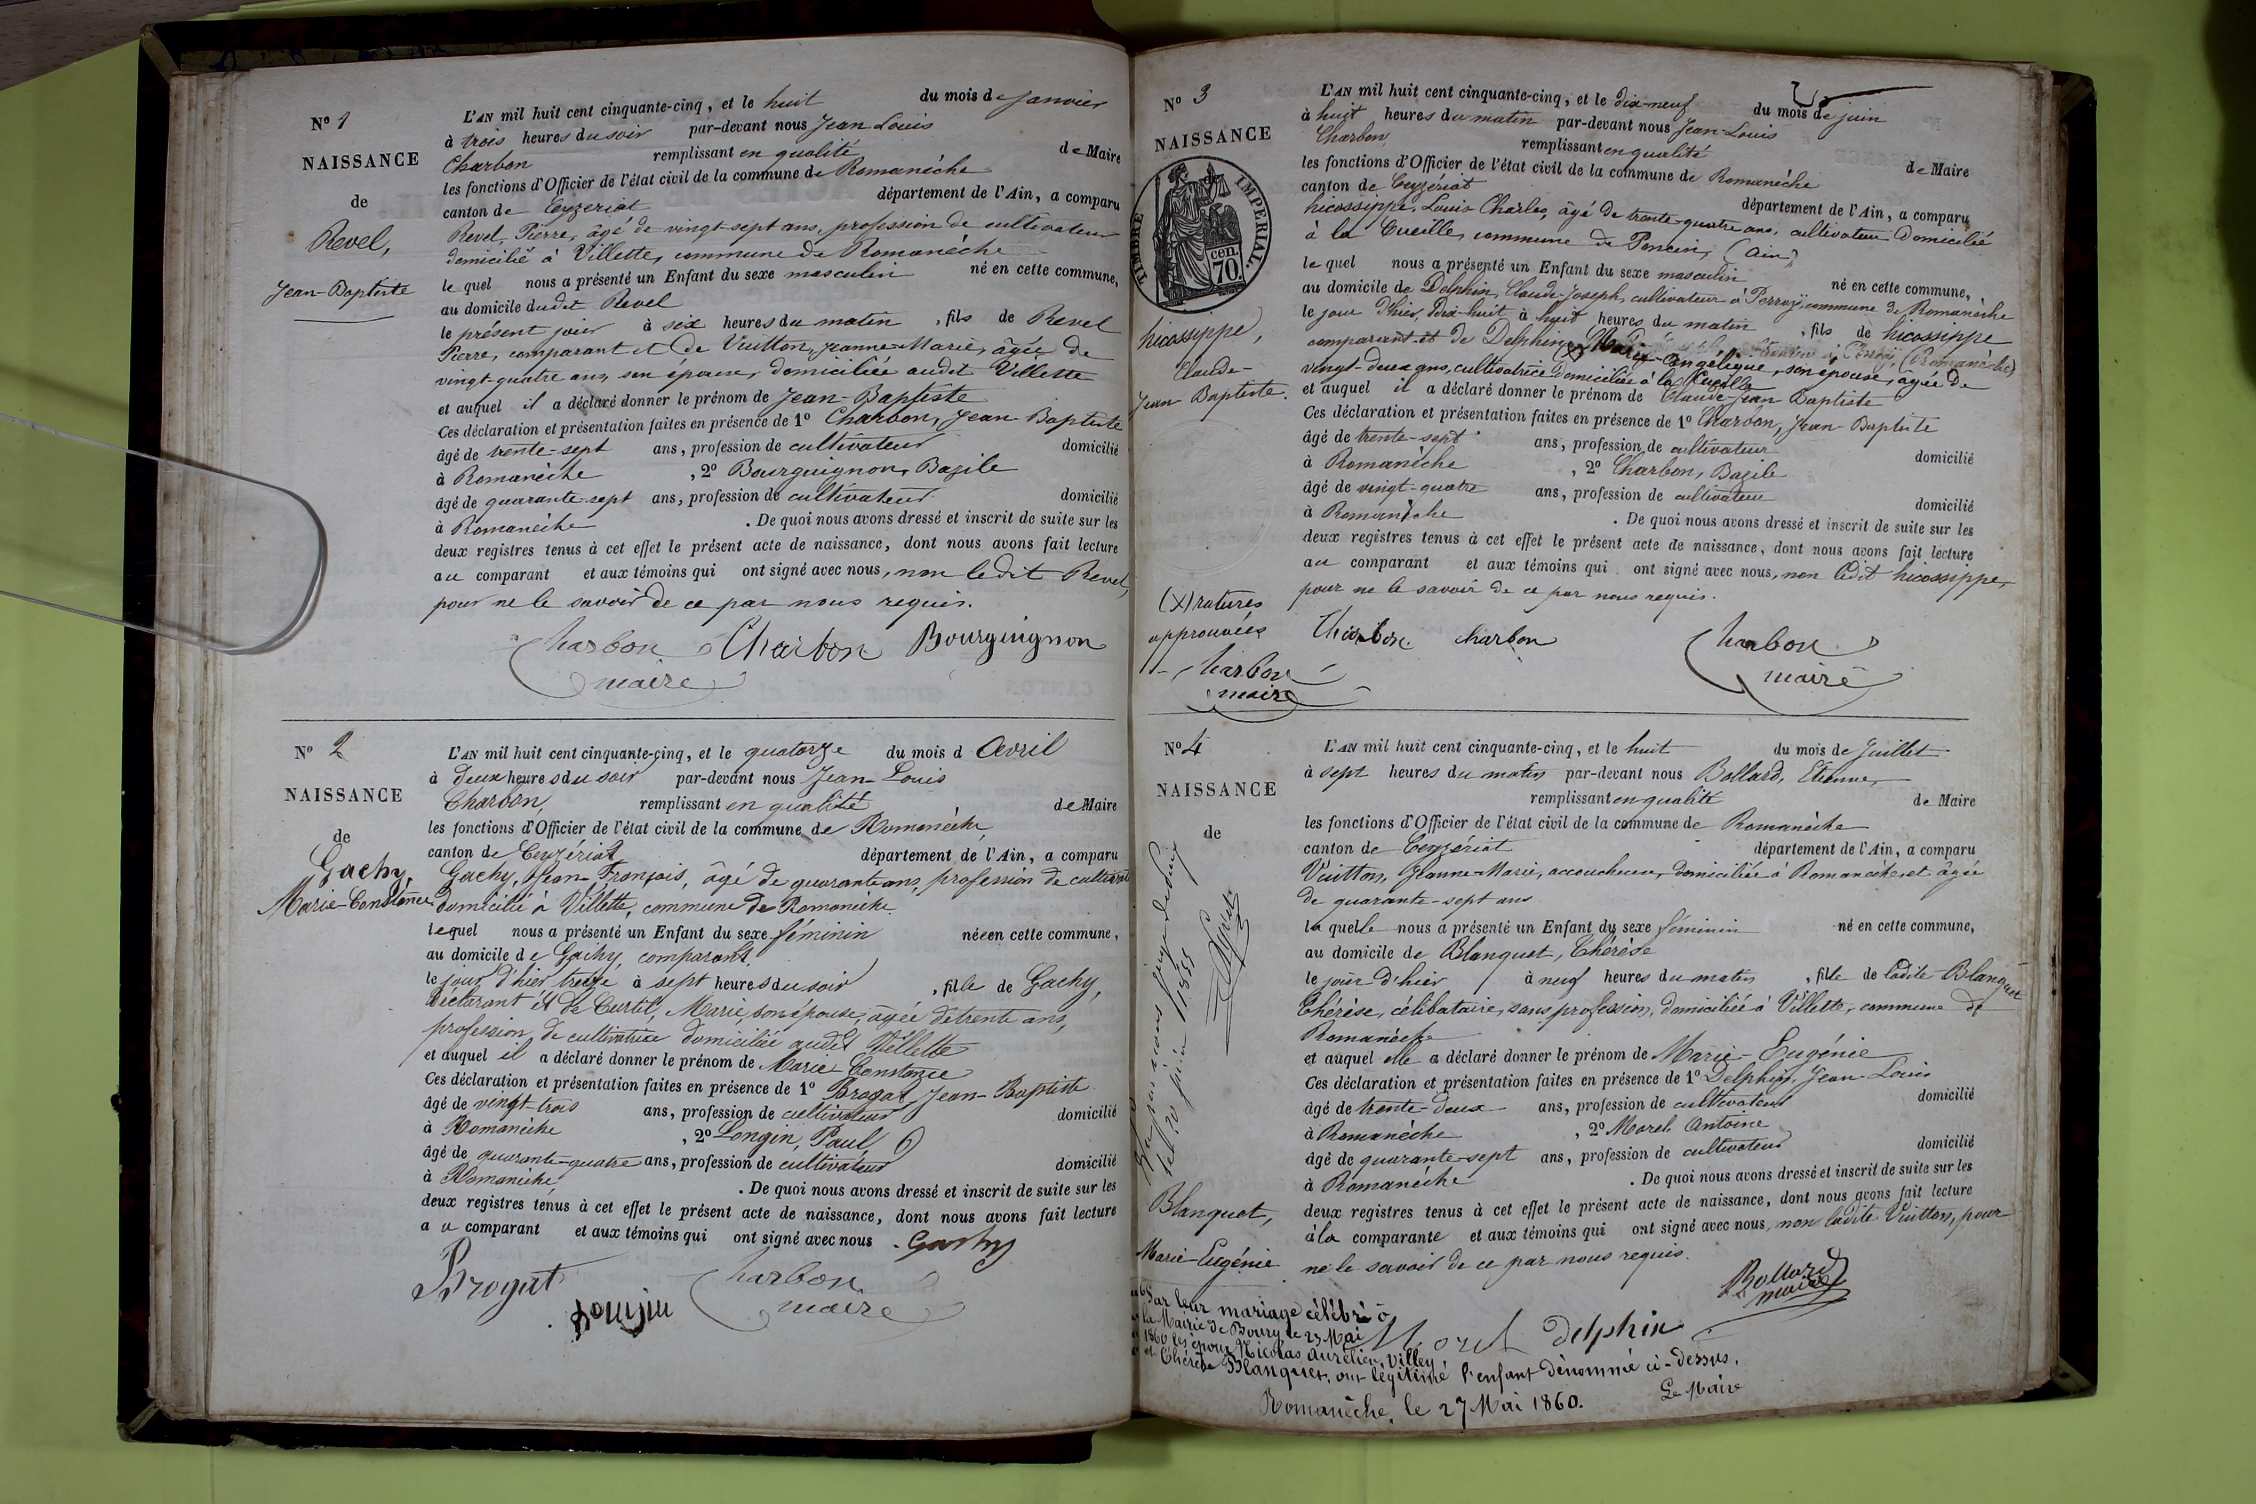 N° 1
NAISSANCE
de
Revel,
Jean-Baptiste
L'AN mil huit cent cinquante-cinq, et le huit du mois de Janvier
à trois heures du soir par-devant nous Jean Louis
Charbon remplissant en qualité de Maire
les fonctions d'Officier de l'état civil de la commune de Romanèche
canton de Ceyzeriat département de l'Ain, a comparu
Revel, Pierre, âgé de vingt-sept ans, profession de cultivateur
domicilié à Villette, commune de Romanèche
le quel nous a présenté un Enfant du sexe masculin né en cette commune,
au domicile dudit Revel
le présent jour à six heures du matin, fils de Revel
Pierre, comparant et de Vuitton, Jeanne-Marie, âgée de
vingt-quatre ans, son épouse, domiciliée audit Villette
et auquel il a déclaré donner le prénom de Jean-Baptiste
Ces déclaration et présentation faites en présence de 1° Charbon, Jean-Baptiste
âgé de trente-sept ans, profession de cultivateur domicilié
à Romanèche, 2° Bourguignon, Bazile
âgé de quarante-sept ans, profession de cultivateur domicilié
à Romanèche. De quoi nous avons dressé et inscrit de suite sur les
deux registres tenus à cet effet le présent acte de naissance, dont nous avons fait lecture
au comparant et aux témoins qui ont signé avec nous, non ledit Revel,
pour ne le savoir de ce par nous requis.
Charbon Charbon Bourguignon
maire
N° 2
NAISSANCE
de
Gachy,
Marie-Constance
L'AN mil huit cent cinquante-cinq, et le quatorze du mois d Avril
à deux heures du soir par-devant nous Jean-Louis
Charbon, remplissant en qualité de Maire
les fonctions d'Officier de l'état civil de la commune de Romanèche
canton de Ceyzériat département de l'Ain, a comparu
Gachy, Jean-François, âgé de quarante ans, profession de cultivat
domicilié à Villette, commune de Romanèche
lequel nous a présenté un Enfant du sexe féminin née en cette commune,
au domicile de Gachy, comparant
le jour d'hier treize à sept heures du soir, fille de Gachy,
déclarant et de Curtil, Marie, son épouse, âgée de trente ans,
profession de cultivatrice domiciliée audit Villette
et auquel il a déclaré donner le prénom de Marie Constance
Ces déclaration et présentation faites en présence de 1° Brogat, Jean-Baptiste
âgé de vingt-trois ans, profession de cultivateur domicilié
à Romanèche, 2° Longin, Paul
âgé de quarante-quatre ans, profession de cultivateur domicilié
à Romanèche. De quoi nous avons dressé et inscrit de suite sur les
deux registres tenus à cet effet le présent acte de naissance, dont nous avons fait lecture
au comparant et aux témoins qui ont signé avec nous. Gachy
Brogat Charbon
maire
N° 3
NAISSANCE
de
TIMBRE IMPERIAL.
cen.
70.
hicossyppe,
Claude-
Jean-Baptiste.
L'AN mil huit cent cinquante-cinq, et le dix-neuf du mois de juin
à huit heures du matin par-devant nous Jean-Louis
Charbon, remplissant en qualité de Maire
les fonctions d'Officier de l'état civil de la commune de Romanèche
canton de Ceyzériat département de l'Ain, a comparu
hicossippe, Louis Charles, âgé de trente-quatre ans, cultivateur domicilié
à la Cueille, commune de Poncin, (Ain)
le quel nous a présenté un Enfant du sexe masculin né en cette commune,
au domicile de Delphin, Claude-Joseph, cultivateur à Perroy, commune de Romanèche
le jour d'hier, dix-huit à huit heures du matin, fils de hicossippe
comparant et de Delphin, (X) Marie-Angélique, son épouse, âgée de
vingt-deux ans, cultivatrice domiciliée à la Cueille
et auquel il a déclaré donner le prénom de Claude-Jean Baptiste
Ces déclaration et présentation faites en présence de 1° Charbon, Jean-Baptiste
âgé de trente-sept ans, profession de cultivateur domicilié
à Romanèche, 2° Charbon, Bazile
âgé de vingt-quatre ans, profession de cultivateur domicilié
à Romanèche. De quoi nous avons dressé et inscrit de suite sur les
deux registres tenus à cet effet le présent acte de naissance, dont nous avons fait lecture
au comparant et aux témoins qui ont signé avec nous, non ledit hicossippe,
pour ne le savoir de ce par nous requis.
(X) ratures
approuvées
Charbon
maire
Charbon charbon Charbon
maire
N° 4
NAISSANCE
de
Blanquet,
Marie-Eugénie
L'AN mil huit cent cinquante-cinq, et le huit du mois de Juillet
à sept heures du matin par-devant nous Bollard, Etienne,
remplissant en qualité de Maire
les fonctions d'Officier de l'état civil de la commune de Romanèche
canton de Ceyzériat département de l'Ain, a comparu
Vuitton, Jeanne-Marie, accoucheuse, domiciliée à Romanèche, et âgée
de quarante-sept ans
la quelle nous a présenté un Enfant du sexe féminin né en cette commune,
au domicile de Blanquet, Thérèse
le jour d'hier à neuf heures du matin, fille de ladite Blanquet
Thérèse, célibataire, sans profession, domiciliée à Villette, commune de
Romanèche
et auquel elle a déclaré donner le prénom de Marie-Eugénie
Ces déclaration et présentation faites en présence de 1° Delphin, Jean-Louis
âgé de trente-deux ans, profession de cultivateur domicilié
à Romanèche, 2° Morel Antoine
âgé de quarante-sept ans, profession de cultivateur domicilié
à Romanèche. De quoi nous avons dressé et inscrit de suite sur les
deux registres tenus à cet effet le présent acte de naissance, dont nous avons fait lecture
à la comparante et aux témoins qui ont signé avec nous, non ladite Vuitton, pour
ne le savoir de ce par nous requis.
Bollard
maire
Morel Delphin
Par leur mariage célébré à
la Mairie de Bourg le 23 Mai
1860 les époux Nicolas Aurélien, Villey
et Thérèse Blanquet, ont légitimé l'enfant dénommé ci-dessus.
Romanèche, le 27 Mai 1860. Le Maire